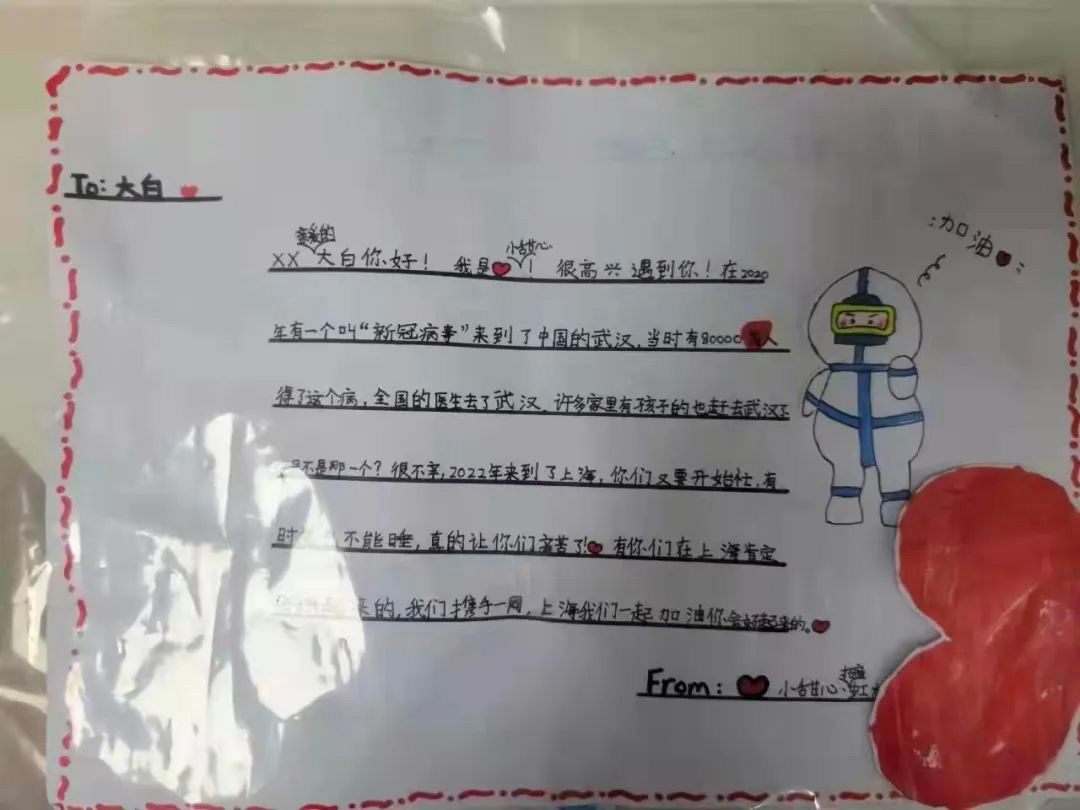 To: 大白
亲爱的
小甜心
XX 大白你好！ 我是！ 很高兴遇到你！在2020
年有一个叫“新冠病毒”来到了中国的武汉,当时有80000人
得了这个病,全国的医生去了武汉、许多家里有孩子的也赶去武汉了
是不是那一个？很不幸,2022年来到了上海,你们又要开始忙,有
时 不能睡,真的让你们辛苦了! 有你们在上海肯定
来的,我们携手一同,上海我们一起加油你会好起来的。
加油
From: 小甜心